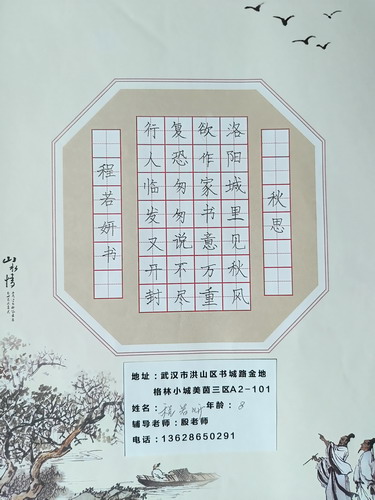 秋思
洛阳城里见秋风
欲作家书意万重
复恐匆匆说不尽
行人临发又开封
程若妍书
山水情
地址：武汉市洪山区书城路金地
格林小城美茵三区A2-101
姓名：程若妍 年龄：8
辅导老师：殷老师
电话：13628650291